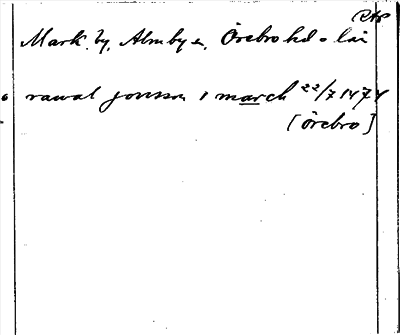 Mark. by, Almby sn, Örebro hd o län
rawal jonsson i march 22/7 1474
[Örebro]